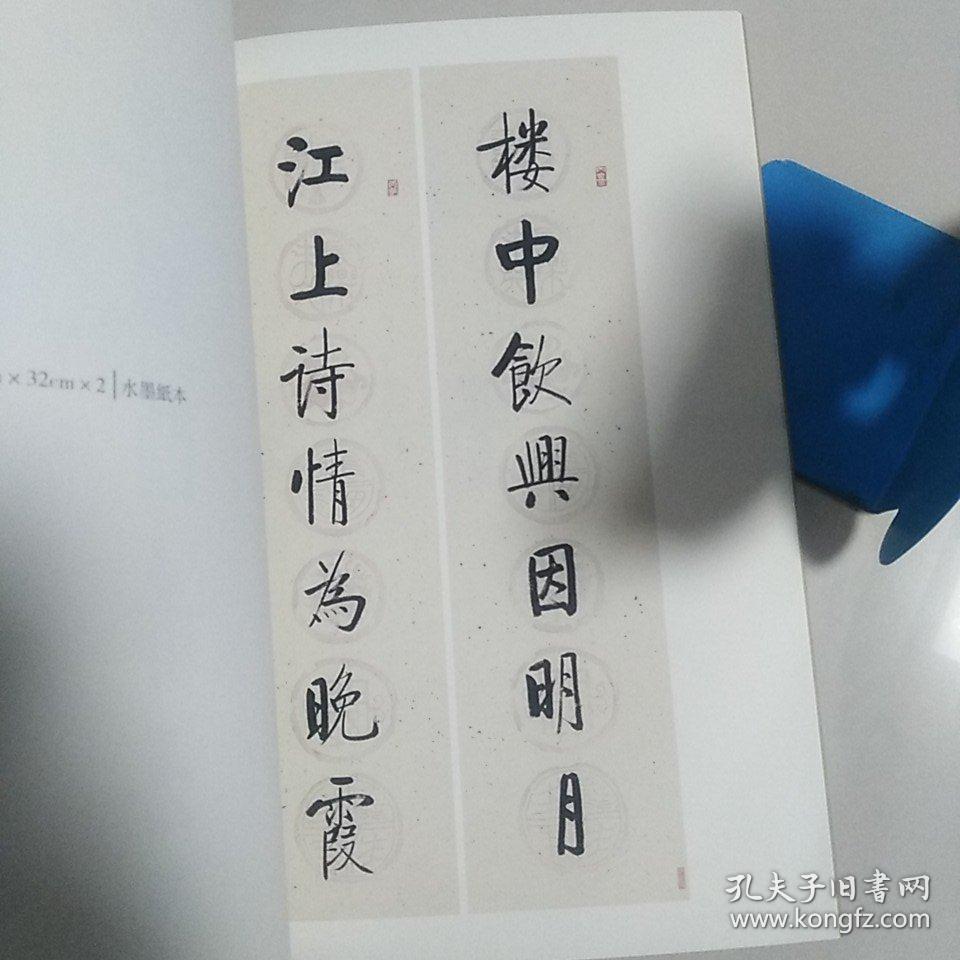 楼中飲興因明月
江上诗情為晚霞
× 32cm × 2 | 水墨紙本
孔夫子旧書网
www.kongfz.com